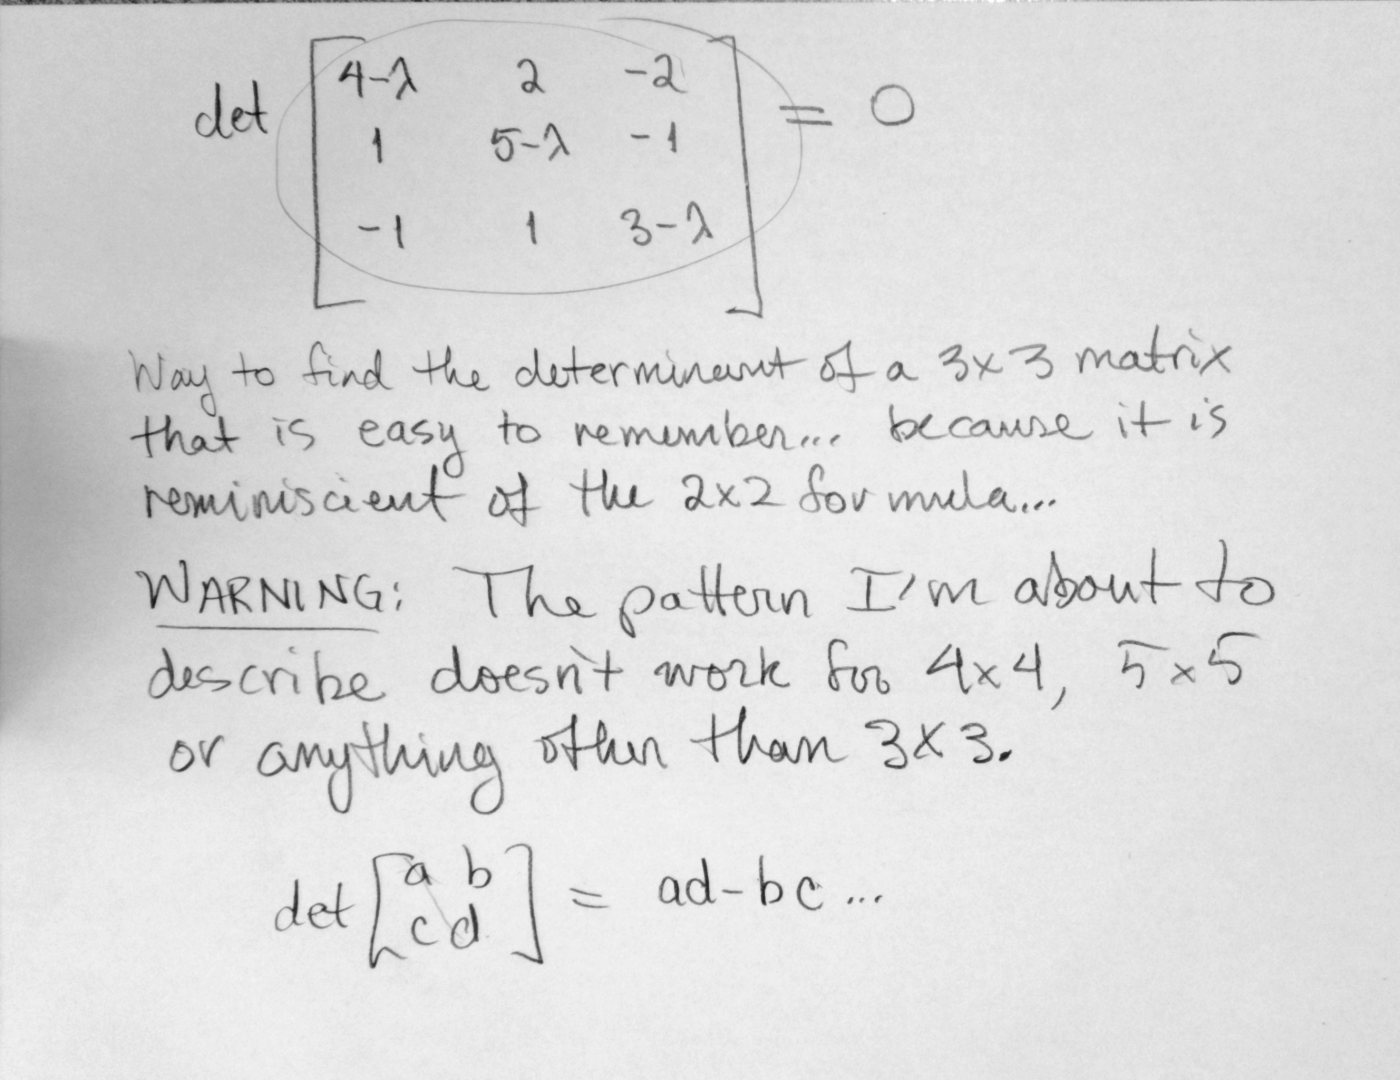 det [ 4-λ 2 -2 ] = 0
1 5-λ -1
-1 1 3-λ
Way to find the determinant of a 3x3 matrix
that is easy to remember... because it is
reminiscient of the 2x2 formula...
WARNING: The pattern I'm about to
describe doesn't work for 4x4, 5x5
or anything other than 3x3.
det [ a b ] = ad-bc...
c d